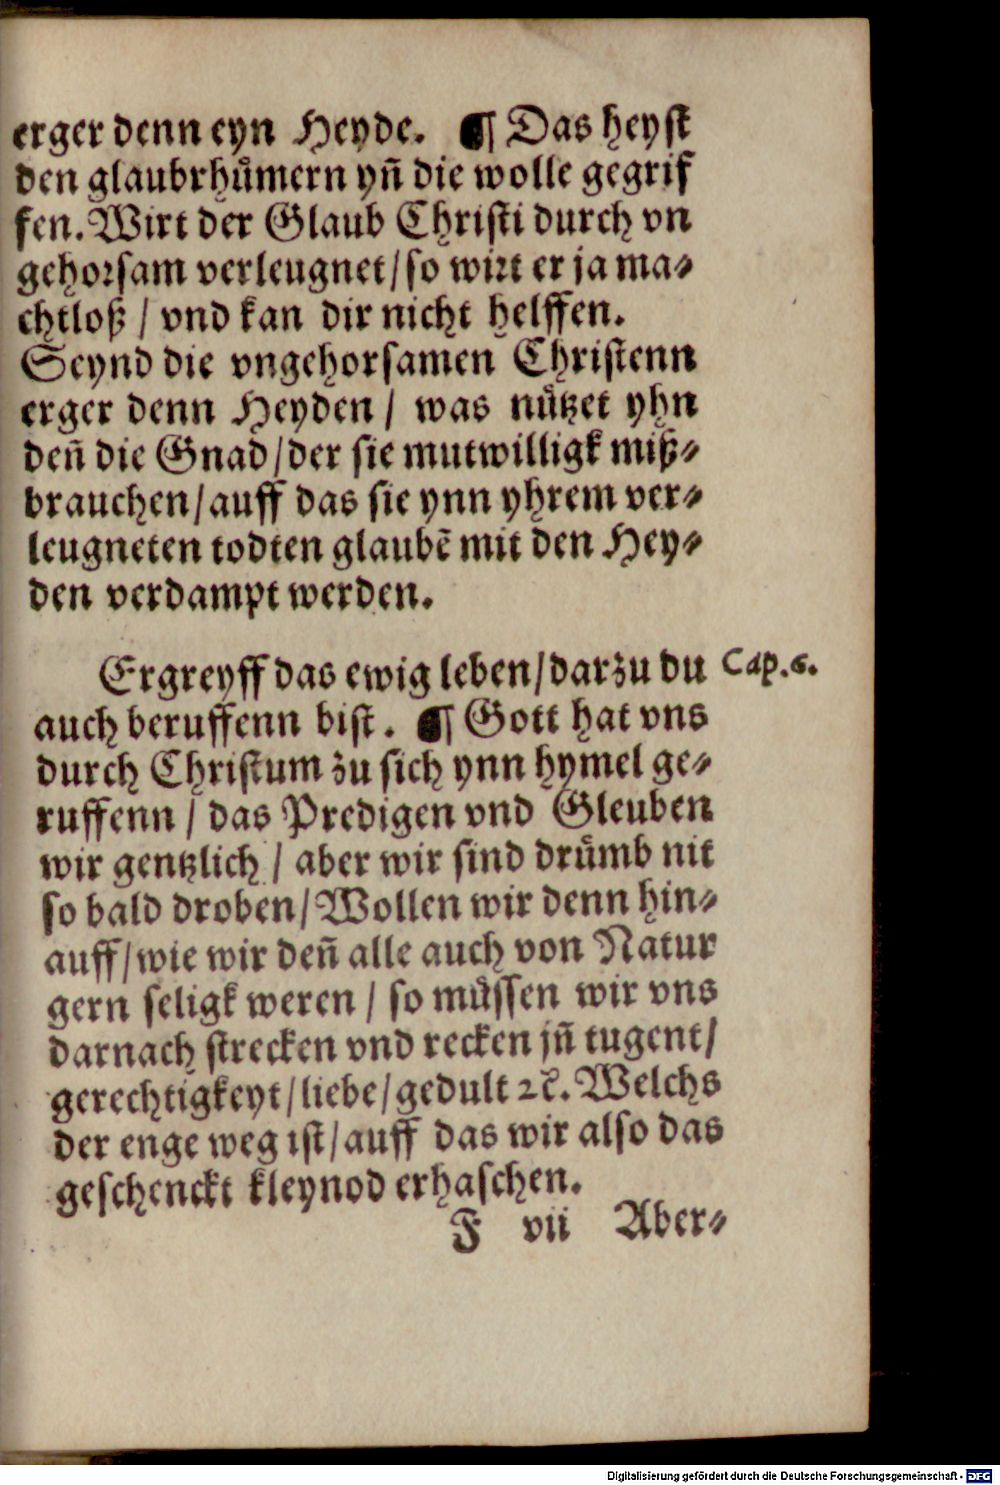 erger denn eyn Heyde. ¶ Das heyst
den glaubrhuͤmern yñ die wolle gegrif
fen. Wirt der Glaub Christi durch vn
gehorsam verleugnet/so wirt er ja ma⸗
chtloß / vnd kan dir nicht helffen.
Seynd die vngehorsamen Christenn
erger denn Heyden / was nuͤtzet yhn
deñ die Gnad/der sie mutwilligk miß⸗
brauchen/auff das sie ynn yhrem ver⸗
leugneten todten glaubē mit den Hey⸗
den verdampt werden.
Ergreyff das ewig leben/darzu du Cap.6.
auch beruffenn bist. ¶ Gott hat vns
durch Christum zu sich ynn hymel ge⸗
ruffenn / das Predigen vnd Gleuben
wir gentzlich / aber wir sind druͤmb nit
so bald droben/Wollen wir denn hin⸗
auff/wie wir deñ alle auch von Natur
gern seligk weren / so muͤssen wir vns
darnach strecken vnd recken jñ tugent/
gerechtigkeyt/liebe/gedult ꝛc. Welchs
der enge weg ist/auff das wir also das
geschenckt kleynod erhaschen.
F vii Aber⸗
Digitalisierung gefördert durch die Deutsche Forschungsgemeinschaft - DFG